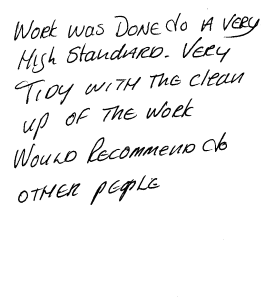 Work was Done to A Very
High Standard. Very
Tidy with the clean
up of the work
Would Recommend to
other people